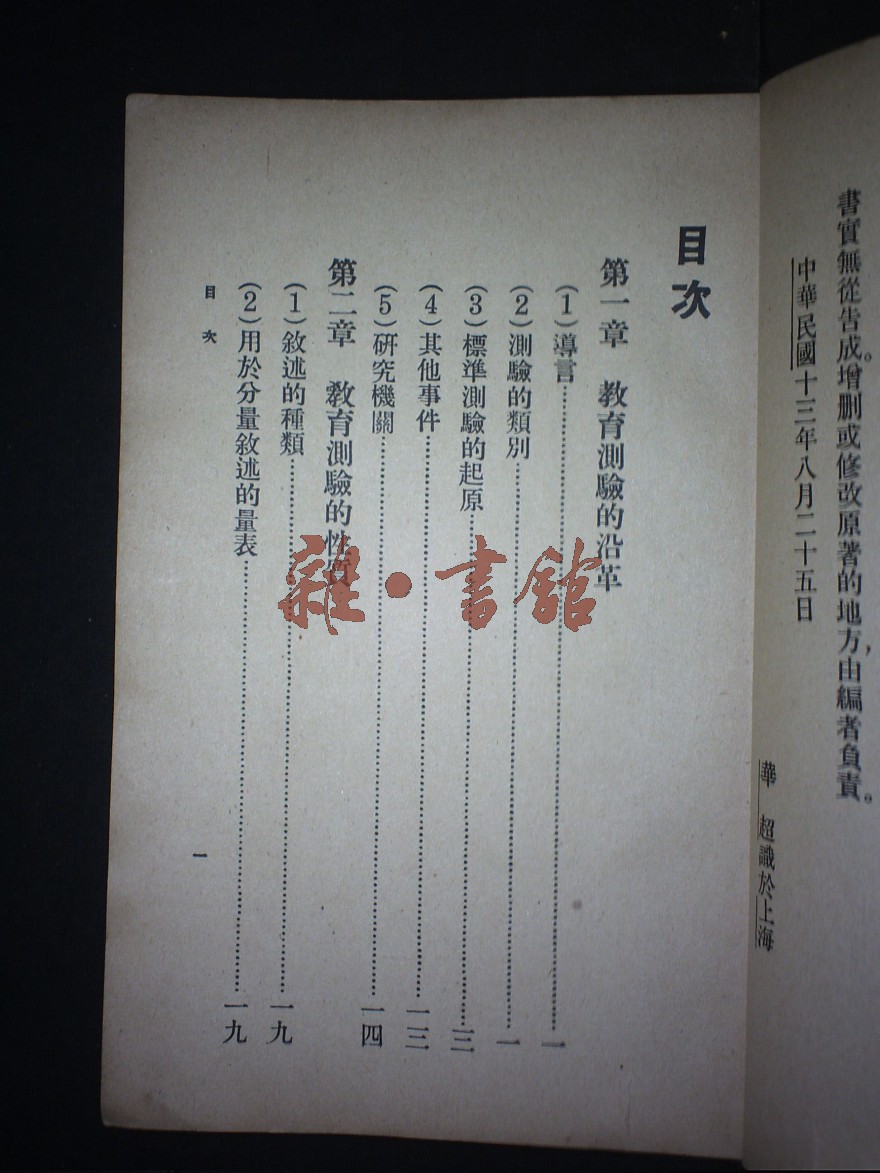 書實無從告成。增删或修改原著的地方,由編者負責。
中華民國十三年八月二十五日
華 超識於上海
目次
第一章 教育測驗的沿革
(1)導言……一
(2)測驗的類別……一
(3)標準測驗的起原……三
(4)其他事件……一三
(5)研究機關……一四
第二章 教育測驗的性質
(1)敘述的種類……一九
(2)用於分量敘述的量表……一九
目次
一
雜·書館